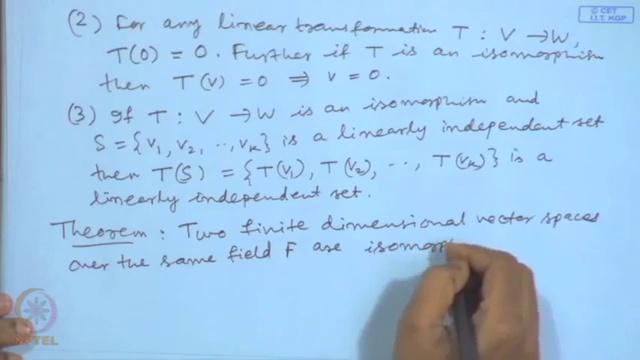 © CET
I.I.T. KGP
(2) For any linear transformation T : V → W,
T(0) = 0. Further if T is an isomorphism
then T(v) = 0 ⟹ v = 0.
(3) If T : V → W is an isomorphism and
S = {v₁, v₂, .., vₖ} is a linearly independent set
then T(S) = {T(v₁), T(v₂), .., T(vₖ)} is a
linearly independent set.
Theorem : Two finite dimensional vector spaces
over the same field F are isomorp
NPTEL